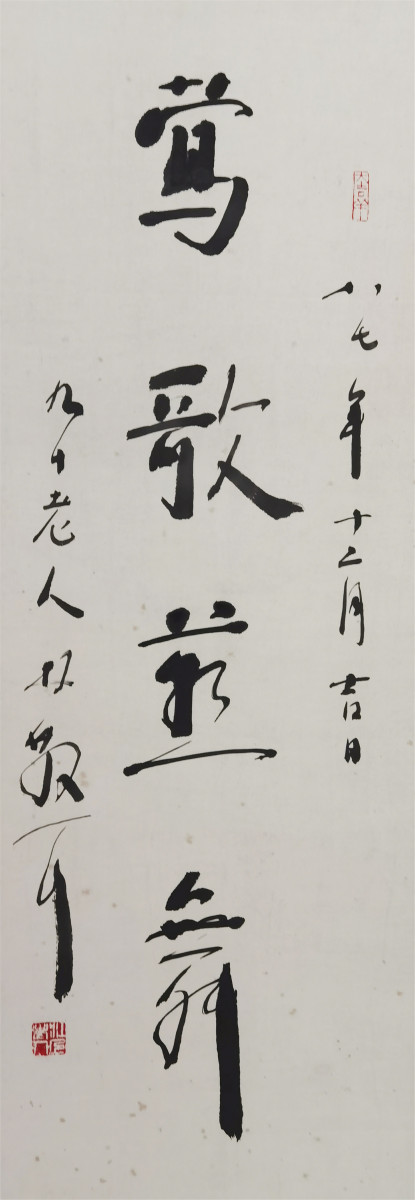 八七年十二月吉日
莺歌燕舞
九十老人林散耳